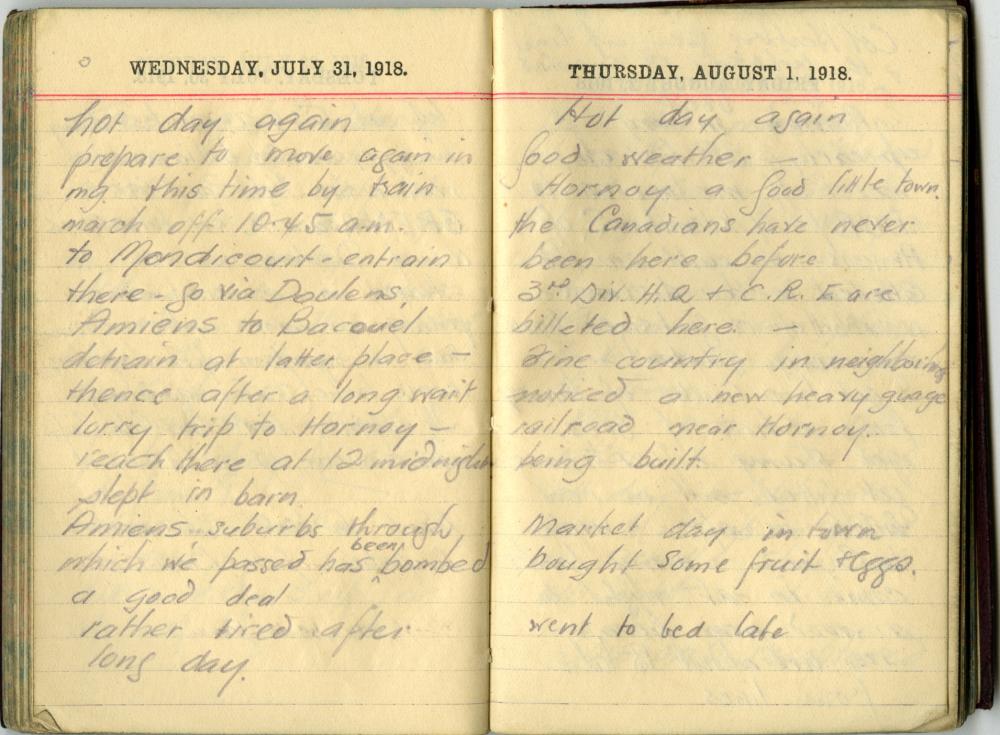 WEDNESDAY, JULY 31, 1918.
hot day again
prepare to move again in
mg. this time by train
march off 10.45 a.m.
to Mondicourt - entrain
there - go via Doulens,
Amiens to Bacouel
detrain at latter place -
thence after a long wait
lorry trip to Hornoy -
reach there at 12 midnight
slept in barn
Amiens suburbs through
which we passed has been bombed
a good deal
rather tired after
long day.
THURSDAY, AUGUST 1, 1918.
Hot day again
good weather -
Hornoy a good little town.
the Canadians have never
been here before
3rd Div. H.Q + C.R.E are
billeted here. -
Fine country in neighboring
noticed a new heavy guage
railroad near Hornoy.
being built.
Market day in town
bought some fruit + eggs.
went to bed late